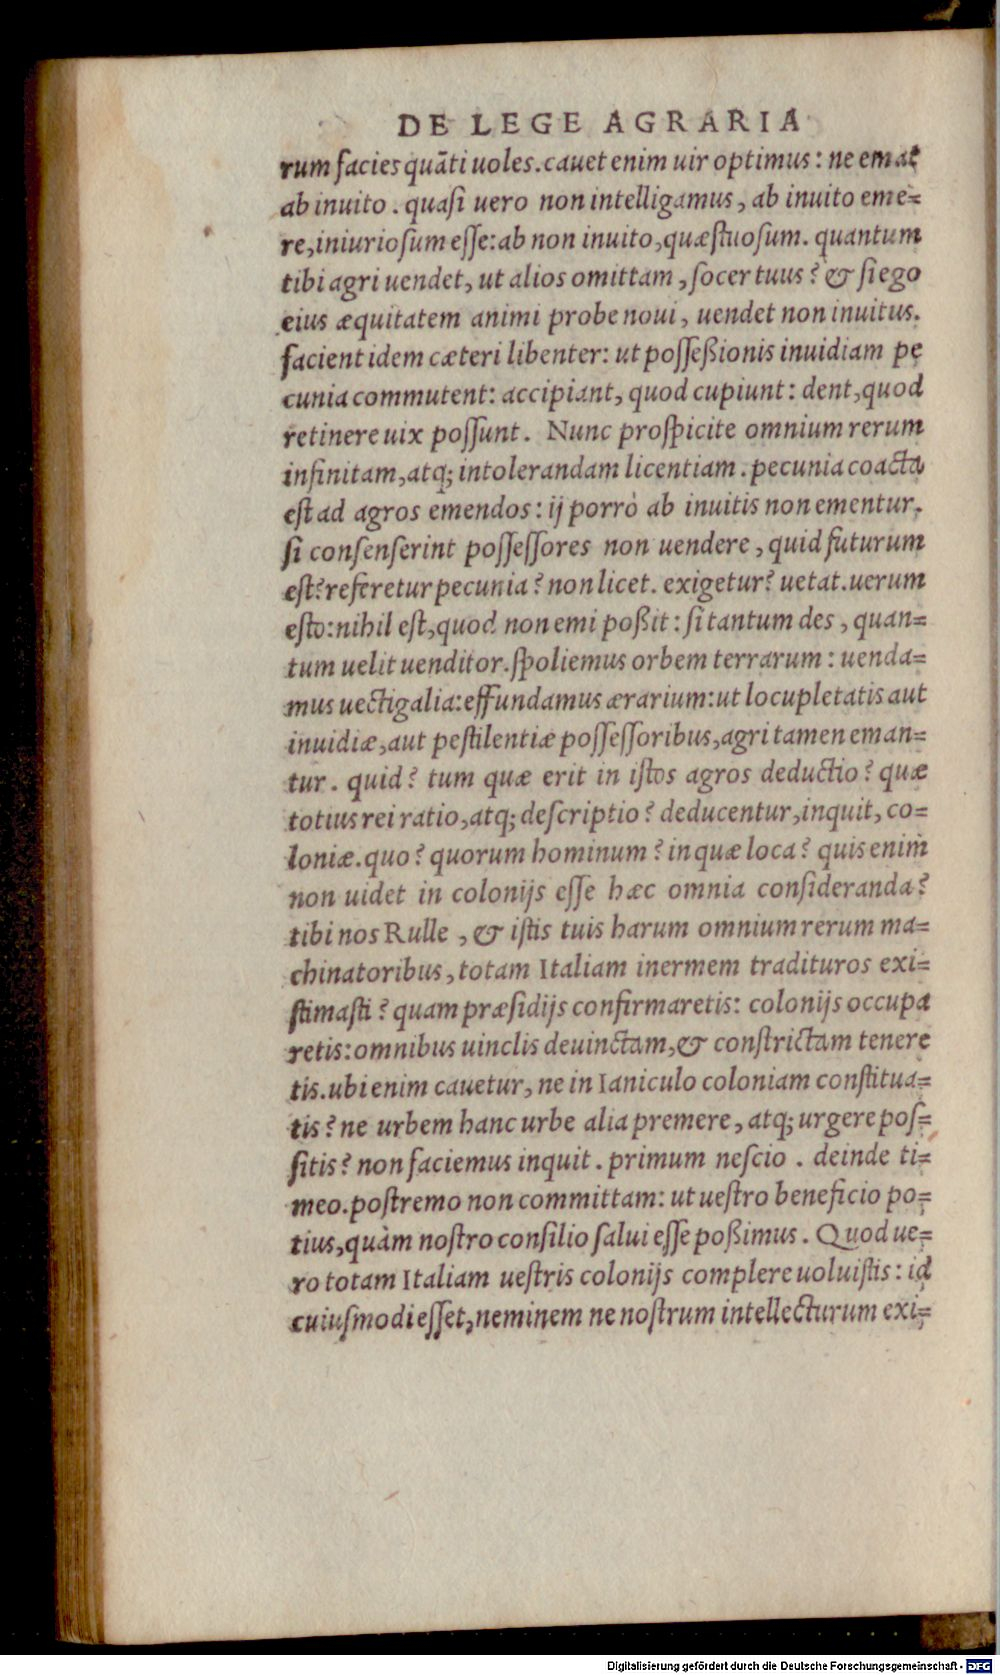 DE LEGE AGRARIA
rum facies quāti uoles. cauet enim uir optimus: ne emat
ab inuito. quaſi uero non intelligamus, ab inuito eme-
re, iniurioſum eſſe: ab non inuito, quæſtuoſum. quantum
tibi agri uendet, ut alios omittam, ſocer tuus? & ſi ego
eius æquitatem animi probe noui, uendet non inuitus.
facient idem cæteri libenter: ut poſſeßionis inuidiam pe
cunia commutent: accipiant, quod cupiunt: dent, quod
retinere uix poſſunt. Nunc proſpicite omnium rerum
infinitam, atq; intolerandam licentiam. pecunia coacta
eſt ad agros emendos: ij porrò ab inuitis non ementur.
ſi conſenſerint poſſeſſores non uendere, quid futurum
eſt? referetur pecunia? non licet. exigetur? uetat. uerum
eſto: nihil eſt, quod non emi poßit: ſi tantum des, quan-
tum uelit uenditor. ſpoliemus orbem terrarum: uenda-
mus uectigalia: effundamus ærarium: ut locupletatis aut
inuidiæ, aut peſtilentiæ poſſeſſoribus, agri tamen eman-
tur. quid? tum quæ erit in iſtos agros deductio? quæ
totius rei ratio, atq; deſcriptio? deducentur, inquit, co-
loniæ. quo? quorum hominum? in quæ loca? quis enim
non uidet in colonijs eſſe hæc omnia conſideranda?
tibi nos Rulle, & iſtis tuis harum omnium rerum ma-
chinatoribus, totam Italiam inermem tradituros exi-
ſtimaſti? quam præſidijs confirmaretis: colonijs occupa
retis: omnibus uinclis deuinctam, & conſtrictam tenere
tis. ubi enim cauetur, ne in Ianiculo coloniam conſtitua-
tis? ne urbem hanc urbe alia premere, atq; urgere poſ-
ſitis? non faciemus inquit. primum neſcio. deinde ti-
meo. poſtremo non committam: ut ueſtro beneficio po-
tius, quàm noſtro conſilio ſalui eſſe poßimus. Quod ue-
ro totam Italiam ueſtris colonijs complere uoluiſtis: id
cuiuſmodi eſſet, neminem ne noſtrum intellecturum exi-
Digitalisierung gefördert durch die Deutsche Forschungsgemeinschaft - DFG